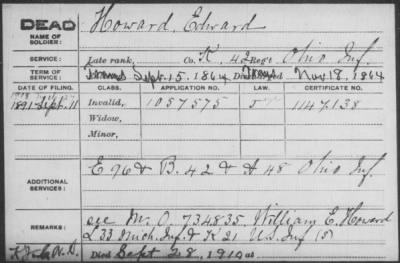 DEAD
NAME OF SOLDIER: Howard, Edward
SERVICE: Late rank, Co. K, 42 Reg't Ohio Inf.
TERM OF SERVICE: Sept. 15, 1864 Nov 18, 1864
DATE OF FILING. CLASS. APPLICATION NO. LAW. CERTIFICATE NO.
1891 Sept. 11 Invalid, 1057575 1147.138
Widow,
Minor,
ADDITIONAL SERVICES: E 96 & B. 42 & A 48 Ohio Inf
REMARKS: see M.O. 734835, William E. Howard
L 33 Mich. Inf. & K 21 U.S. Inf (S)
Died Sept 28, 1910 at